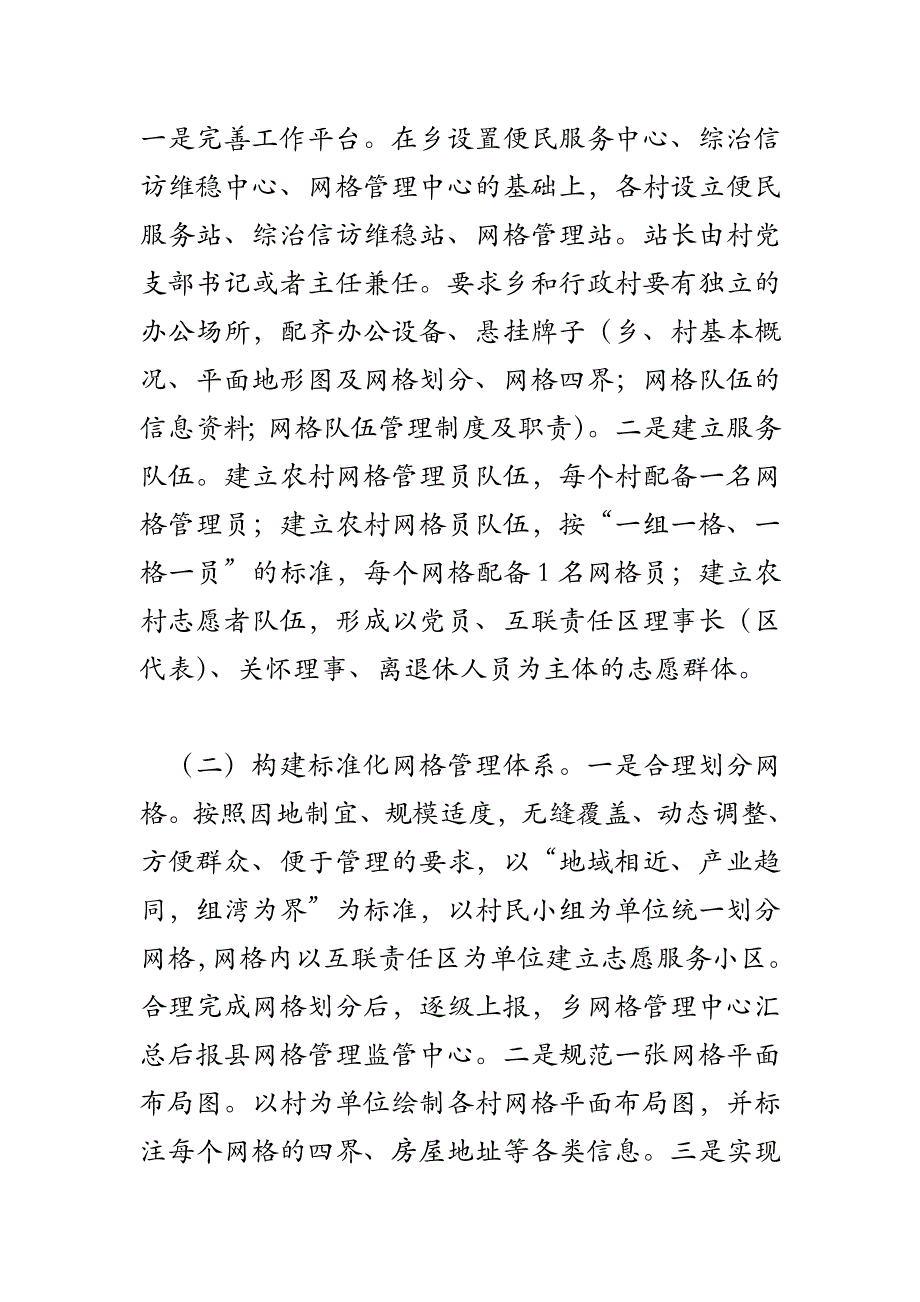 一是完善工作平台。在乡设置便民服务中心、综治信
访维稳中心、网格管理中心的基础上，各村设立便民
服务站、综治信访维稳站、网格管理站。站长由村党
支部书记或者主任兼任。要求乡和行政村要有独立的
办公场所，配齐办公设备、悬挂牌子（乡、村基本概
况、平面地形图及网格划分、网格四界；网格队伍的
信息资料；网格队伍管理制度及职责）。二是建立服务
队伍。建立农村网格管理员队伍，每个村配备一名网
格管理员；建立农村网格员队伍，按“一组一格、一
格一员”的标准，每个网格配备1名网格员；建立农
村志愿者队伍，形成以党员、互联责任区理事长（区
代表）、关怀理事、离退休人员为主体的志愿群体。
（二）构建标准化网格管理体系。一是合理划分网
格。按照因地制宜、规模适度，无缝覆盖、动态调整、
方便群众、便于管理的要求，以“地域相近、产业趋
同，组湾为界”为标准，以村民小组为单位统一划分
网格，网格内以互联责任区为单位建立志愿服务小区。
合理完成网格划分后，逐级上报，乡网格管理中心汇
总后报县网格管理监管中心。二是规范一张网格平面
布局图。以村为单位绘制各村网格平面布局图，并标
注每个网格的四界、房屋地址等各类信息。三是实现